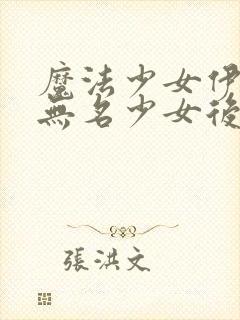 魔法少女伊
無名少女後
張洪文